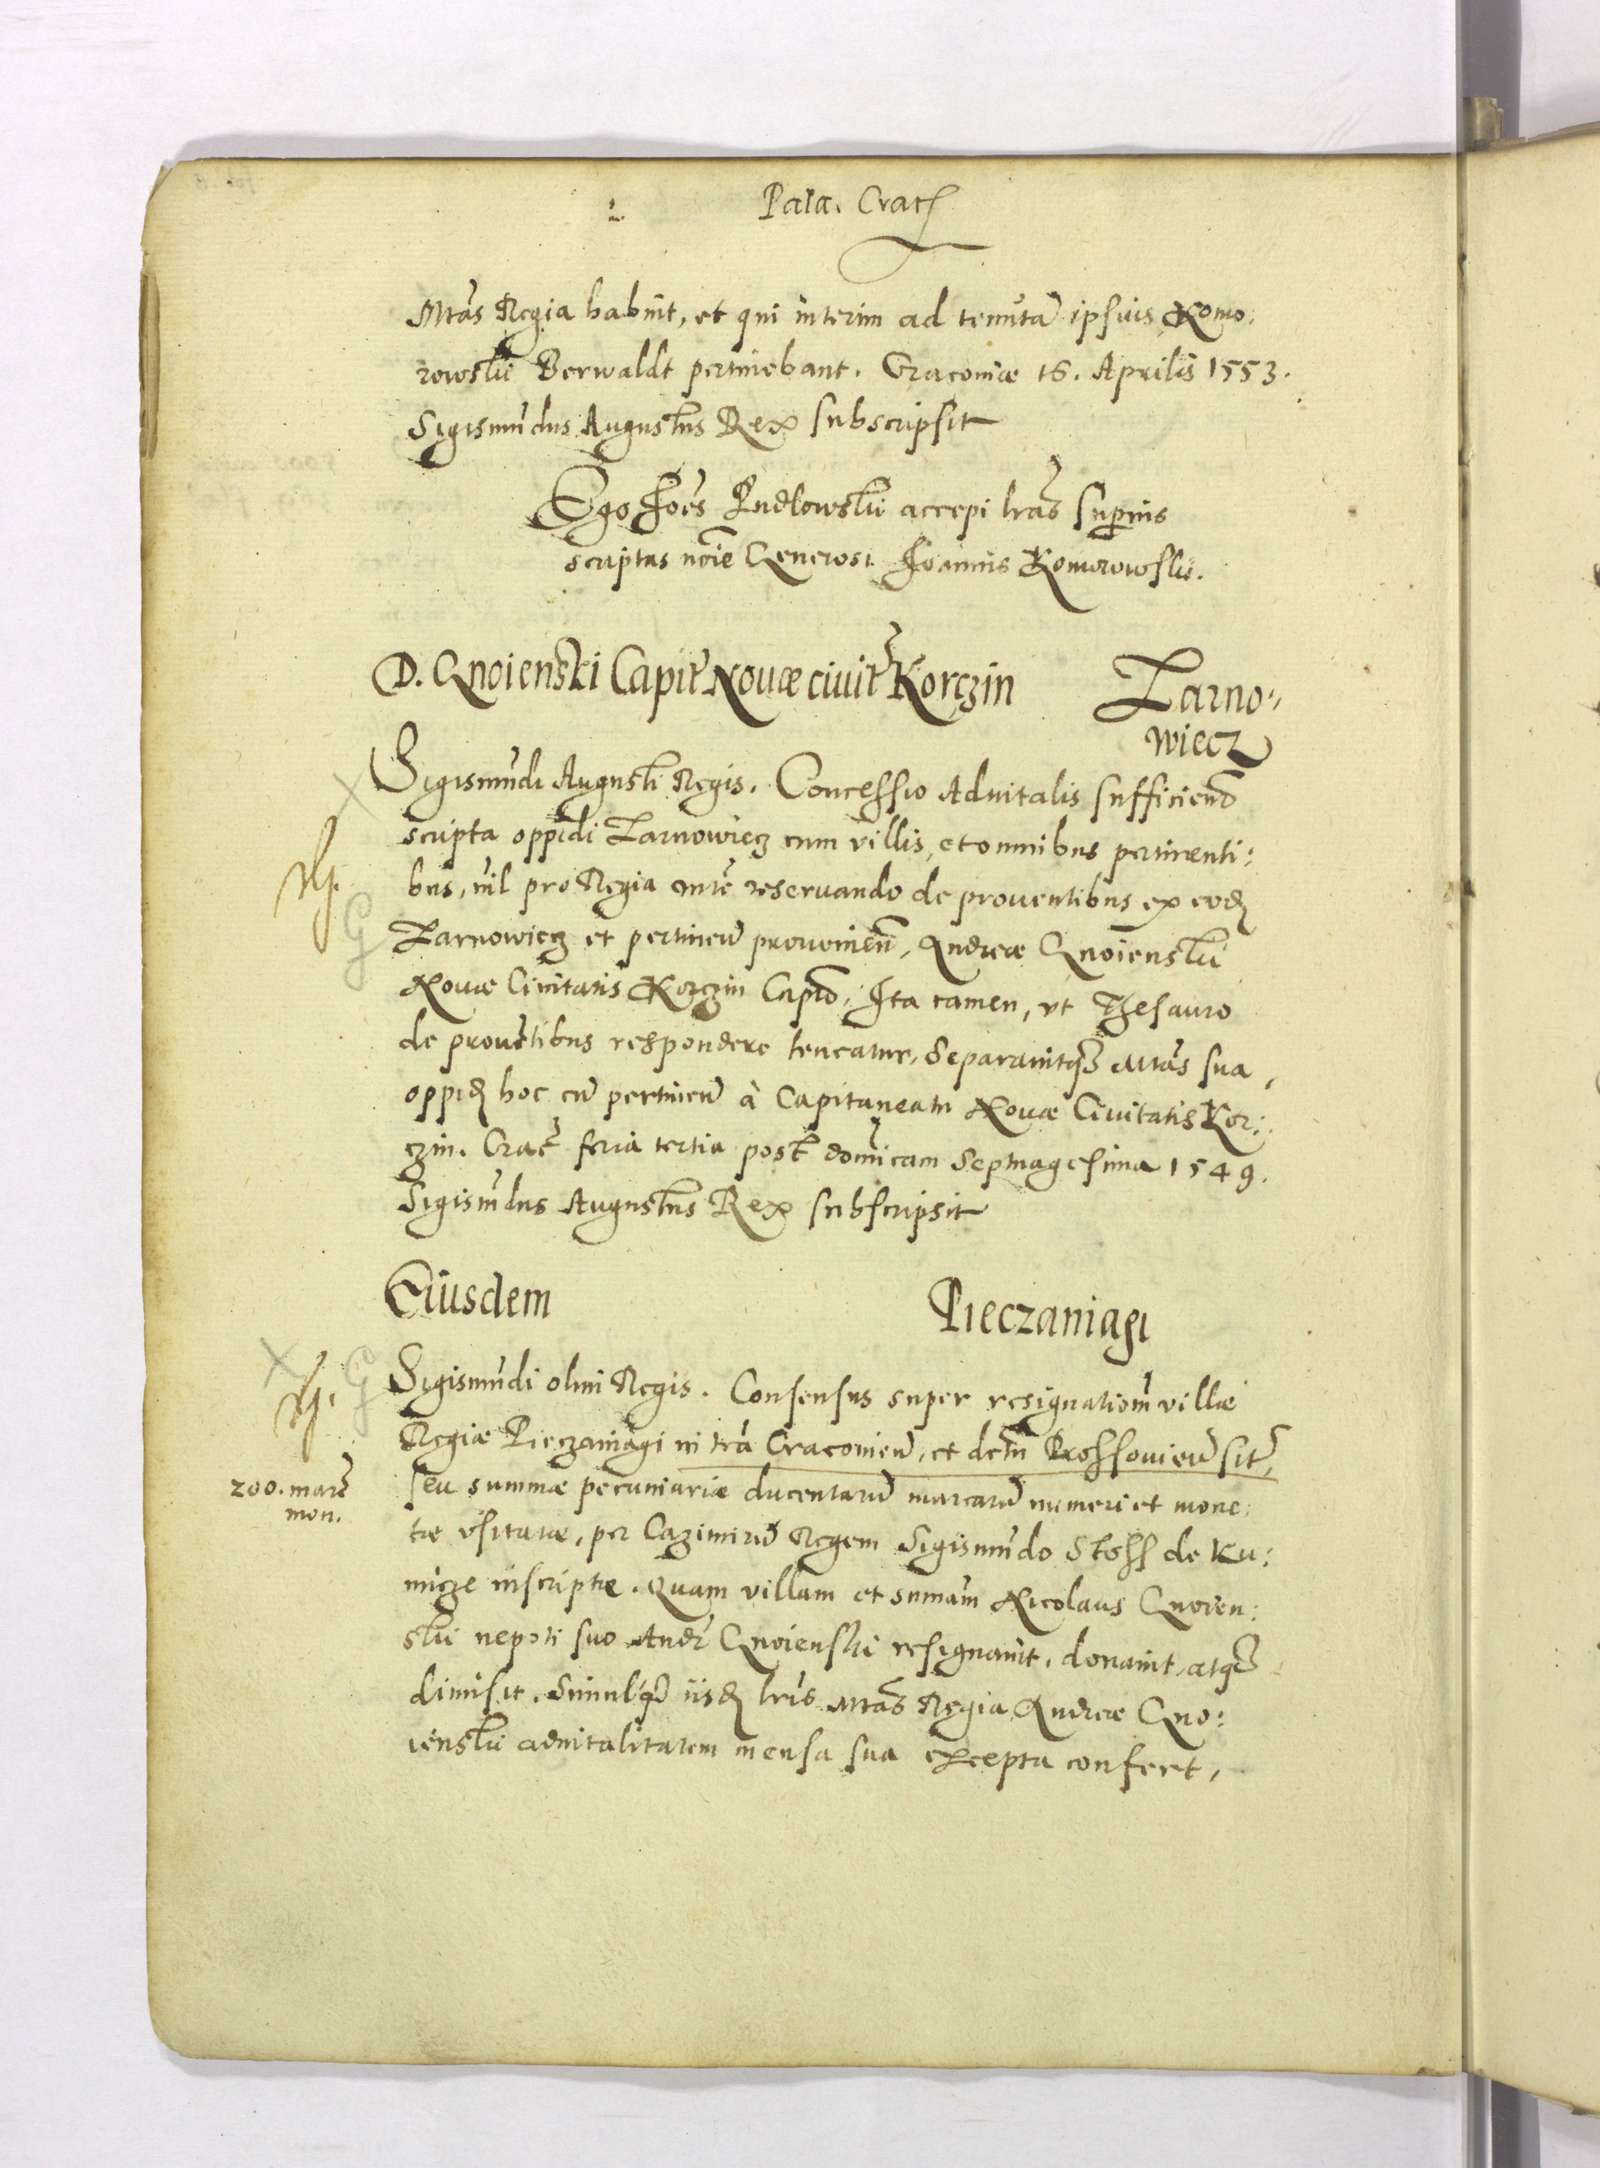 Pala. Crac
Mtas Regia habuit, et qui interim ad tenuta ipsius Komo:
rowskii Berwaldt pertinebant. Cracoviæ 16. Aprilis 1553.
Sigismūdus Augustus Rex subscripsit
Ego Joēs Pudlowskii accepi lrās superius
scriptas noīe Generosi Joannis Komorowskii.
D. Gnoienski Capit Novæ civit Korczin
Zarno:
wiecz
Sigismūdi Augusti Regis. Concessio Advitalis sufficien
scripta oppidi Zarnowiecz cum villis, et omnibus pertinenti:
bus, nil pro Regia mte reservando de proventibus ex eod
Zarnowiecz et pertinen provenien, Andreæ Gnoienskii
Novæ Civitatis Korczin Capo, Ita tamen, vt Thesauro
de provetibus respondere teneatur, Separavitqȝ Mtas sua,
oppid hoc cū pertinen à Capitaneatu Novæ Civitatis Kor:
czin. Crac feria tertia post domicam Septuagesima 1549.
Sigismūdus Augustus Rex subscripsit
Eiusdem
Pieczaniagi
Sigismūdi olim Regis. Consensus super resignationem villæ
Regiæ Pieczaniagi in trā Cracovien, et dctū Prossovien sit,
200. marc
mon.
seu summæ pecuniariæ ducentarū marcarū numeri et mone:
tæ vsitatæ, per Cazimirū Regem Sigismūdo Stoss de Ku:
nicze inscriptæ. Quam villam et sumam Nicolaus Gnoien:
skii nepoti suo Andr Gnoienskii resignavit, donavit, atqȝ
dimisit. Simulqȝ iisd lris Mtas Regia Andreæ Gno:
ienskii advitalitatem mensa sua excepta confert,